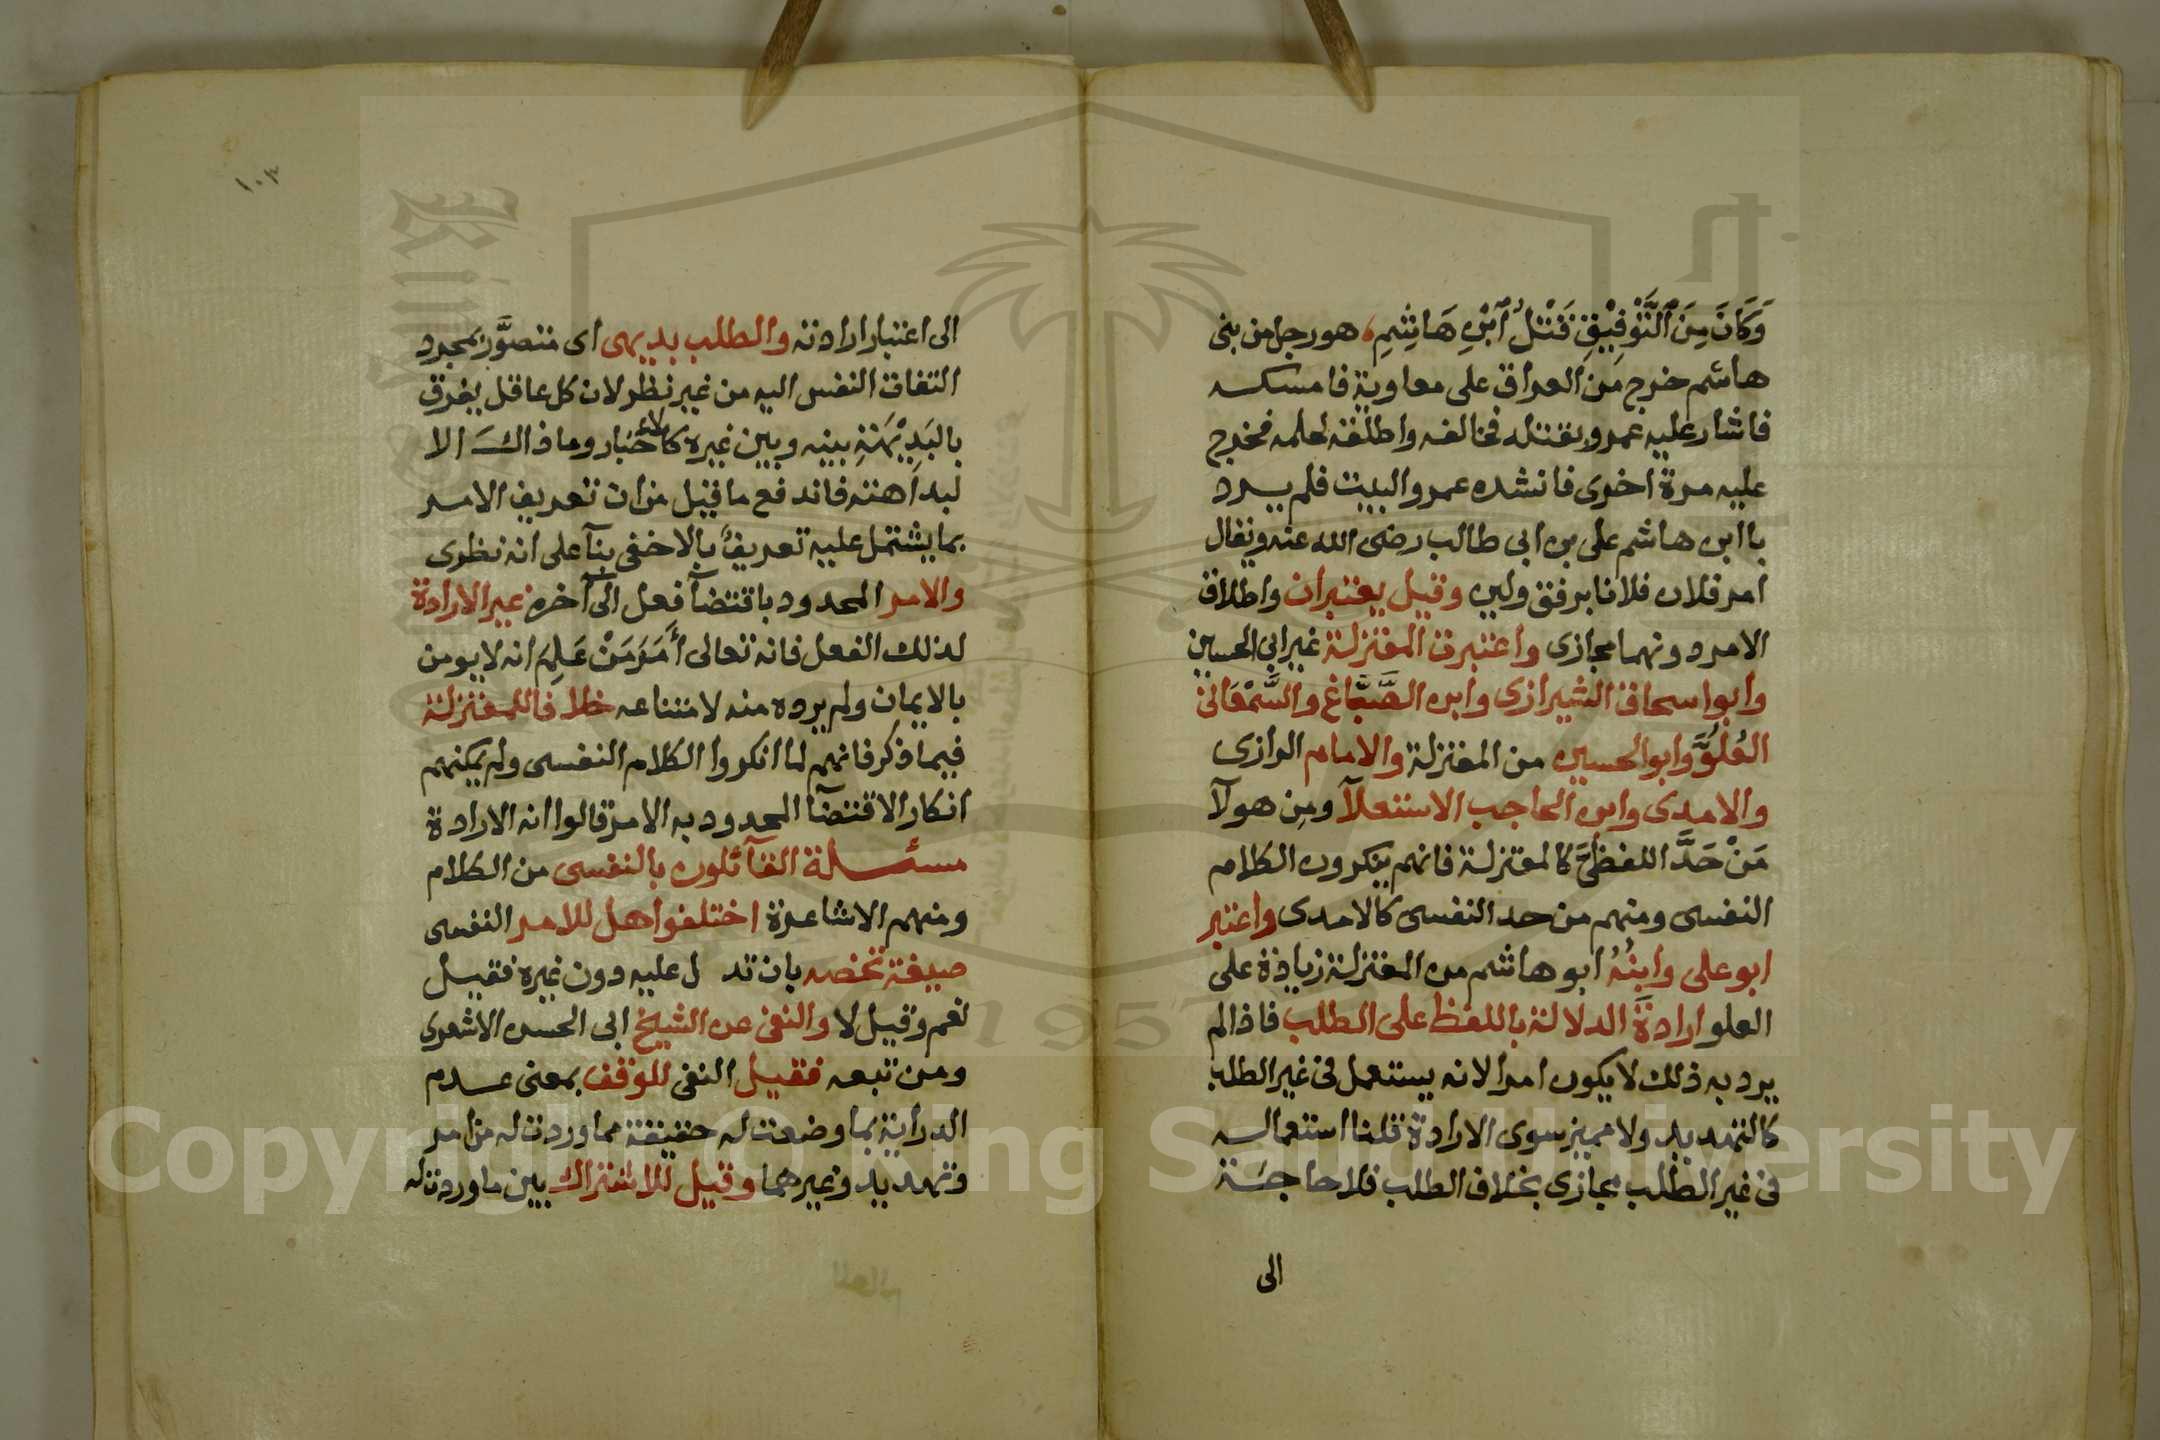 وَكَانَ مِنَ ٱلتَّوْفِيْقِ قَتْلُ ٱبْنِ هَاشِمِ، هو رجل من بنى
هاشم خرج من العراق على معاوية فامسكه
فاشار عليه عمرو بقتله فخالفه واطلقه لحلمه فخرج
عليه مرة اخرى فانشده عمرو البيت فلم يرد
باابن هاشم على بن ابى طالب رضى الله عنه ويقال
امر فلان فلانا برفق ولين وقيل يعتبران واطلاق
الامر دونهما مجازى واعتبرت المعتزلة غير ابى الحسين
وابو اسحاق الشيرازى وابن الصَّبَّاغ والسَّمْعَانى
العُلُوَّ وابو الحسين من المعتزلة والامام الرازى
والامدى وابن الحاجب الاستعلآ ومِن هولآ
مَنْ حَدَّ اللفظىَّ كالمعتزلة فانهم ينكرون الكلام
النفسى ومنهم من حد النفسى كالامدى واعتبر
ابو على وابنُهُ ابو هاشم من المعتزلة زيادة على
العلو ارادةَ الدلالة باللفظ على الطلب فاذا لم
يرد به ذلك لا يكون امرا لانه يستعمل فى غير الطلب
كالتهديد ولا مميز سوى الارادة قلنا استعماله
فى غير الطلب مجازى بخلاف الطلب فلا حاجة
الى
١٠٣
الى اعتبار ارادته والطلب بديهى اى متصوَّر بمجرد
التفات النفس اليه من غير نظر لان كل عاقل يفرق
بالبَدِيْهَةِ بينه وبين غيره كالاخبار وما ذاك الا
لبداهته فاندفع ما قيل من ان تعريف الامر
بما يشتمل عليه تعريفٌ بالاخفى بنآ على انه نظرى
والامر المحدود باقتضآ فعل الى آخره غير الارادة
لذلك الفعل فانه تعالى أَمَرَ مَنْ عَلِمَ انه لا يومن
بالايمان ولم يرده منه لامتناعه خلافا للمعتزلة
فيما ذكر فانهم لما انكروا الكلام النفسى ولم يمكنهم
انكار الاقتضآ المحدود به الامر قالوا انه الارادة
مسئلة القآئلون بالنفسى من الكلام
ومنهم الاشاعرة اختلفوا هل للامر النفسى
صيغة تخصه بان تدل عليه دون غيره فقيل
نعم وقيل لا والنفى عن الشيخ ابى الحسن الاشعرى
ومن تبعه فقيل النفى للوقف بمعنى عدم
الدراية بما وضعت له حقيقة مما وردت له من امر
وتهديد وغيرهما وقيل للاشتراك بين ما وردت له
Copyright © King Saud University
1957